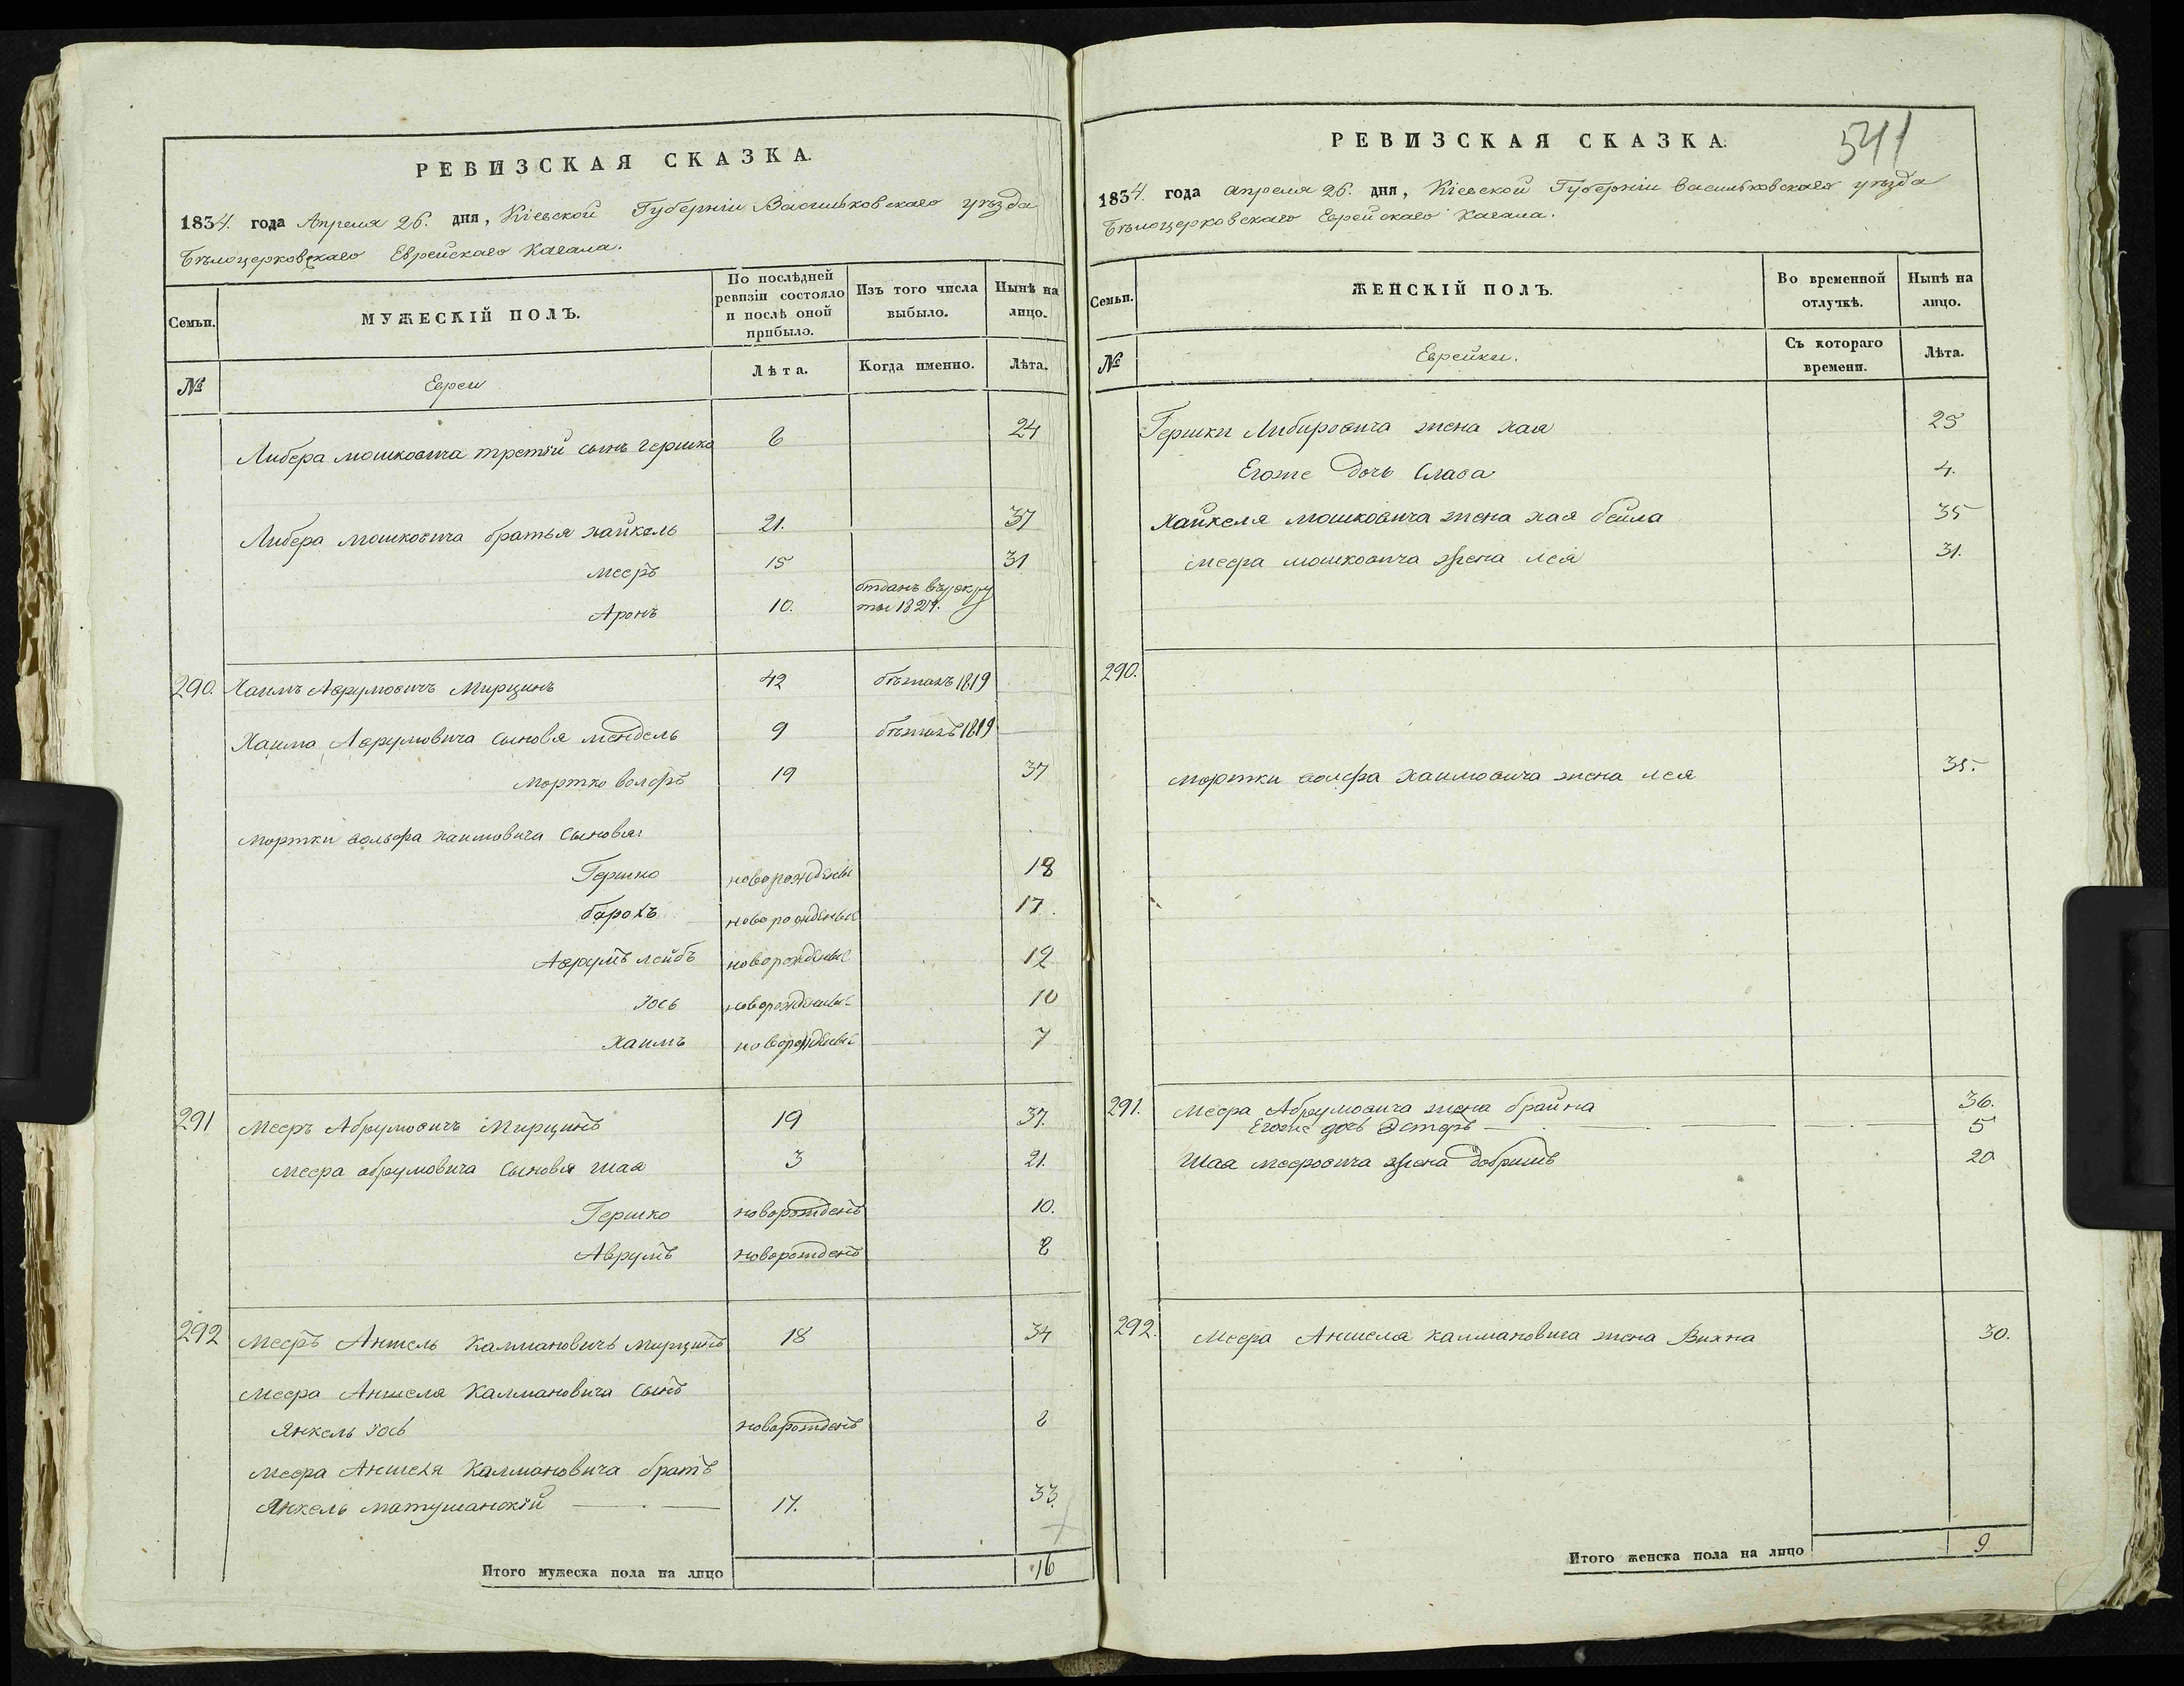 РЕВИЗСКАЯ СКАЗКА.
1834. года Апреля 26. дня, Кіевской Губерніи Васильковскаго уѣзда
Бѣлоцерковскаго Еврейскаго Кагала.
Семьи.
МУЖЕСКІЙ ПОЛЪ.
По послѣдней
ревизіи состояло
и послѣ оной
прибыло.
Изъ того числа
выбыло.
Нынѣ на
лицо.
№
Евреи
Лѣта.
Когда именно.
Лѣта.
Либера мошковича третій сынъ гершко 8 24
Либера мошковича братья хайкель 21. 37
меeръ 15 31
Аронъ 10. отданъ въ рекру
ты 1829.
290. Хаимъ Аврумовичъ Мирцинъ 42 бѣжалъ 1819
Хаима Аврумовича сыновя мендель 9 бѣжалъ 1819
мортко волфъ 19 37
мортки вольфа хаимовича сыновя:
Гершко новорожденые 18
борохъ новорожденые 17.
Аврумъ лейбъ новорожденые 12
Іось новорожденые 10
Хаимъ новорожденые 7
291 Мееръ Абрумовичъ Мирцинъ 19 37.
меера абрумовича сыновя шая 3 21.
Гершко новорожденъ 10.
Аврумъ новорожденъ 8
292 Мееръ Аншель Калмановичъ мирцинъ 18 34
меера Аншеля Калмановича сынъ
Янкель Іось новорожденъ 8
меера Аншеля Калмановича братъ
Янкель матушанскій 17. 33.
Итого мужеска пола на лицо 16
РЕВИЗСКАЯ СКАЗКА.
541
1834. года апреля 26. дня, Кіевской Губерніи васильковскаго уѣзда
Бѣлоцерковскаго Еврейскаго Кагала.
Семьи.
ЖЕНСКІЙ ПОЛЪ.
Во временной
отлучкѣ.
Нынѣ на
лицо.
№
Еврейки.
Съ котораго
времени.
Лѣта.
Гершки Либировича жена хая 25
Егоже дочь Слава 4.
хайкеля мошковича жена хая бейла 35
меера мошковича жена лея 31.
290.
мортки волфа хаимовича жена лея 35.
291. Меера Абрумовича жена брайна 36.
Егоже дочь Эстеръ 5
Шая мееровича жена добришъ 20
292. Меера Аншеля калмановича жена Вихна 30.
Итого женска пола на лицо 9